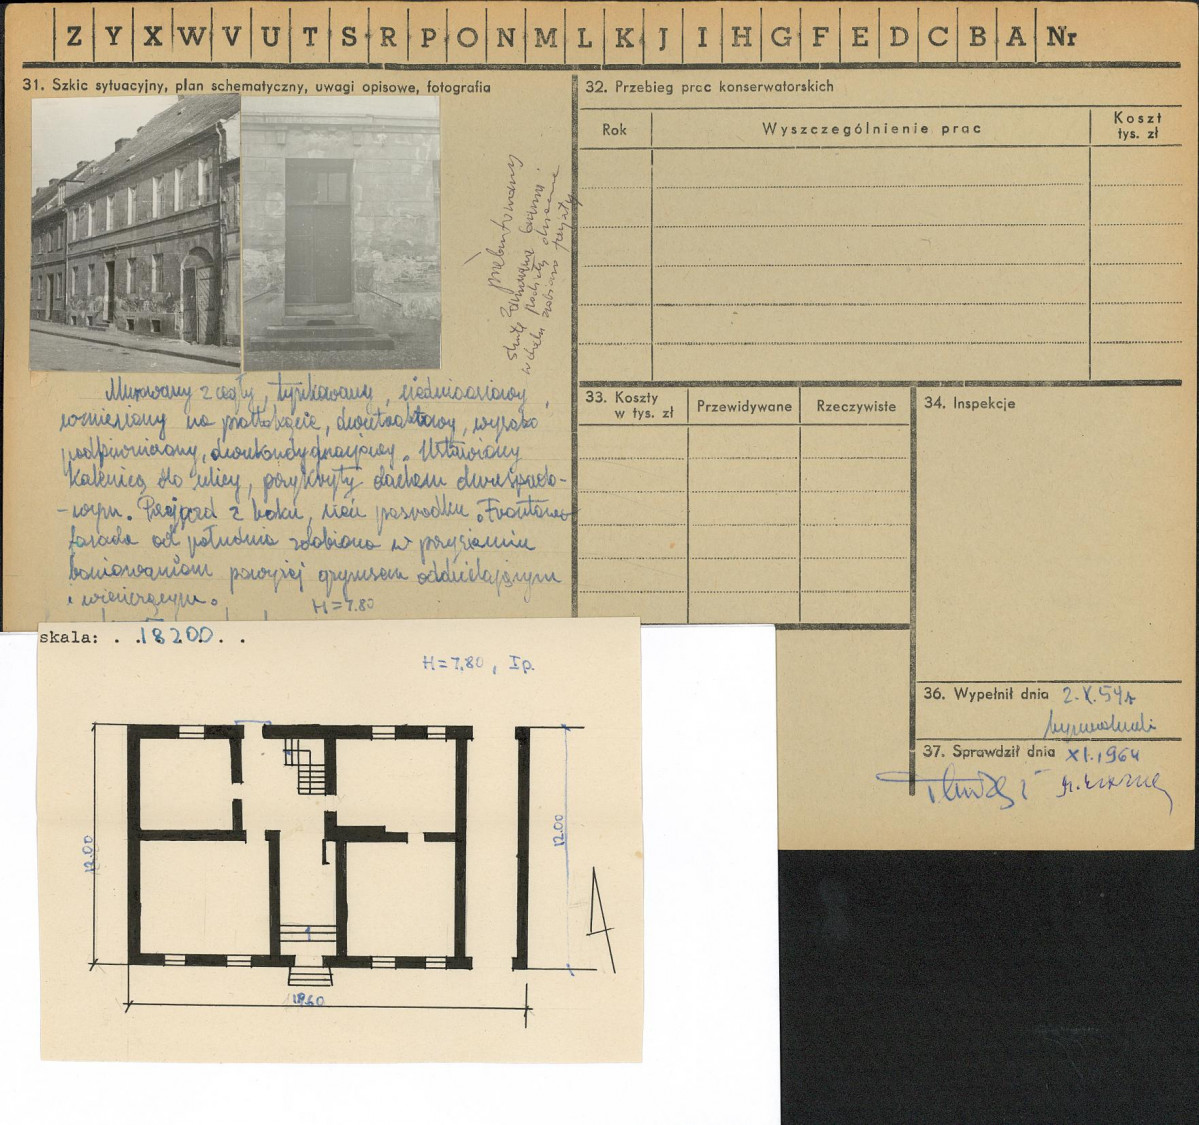 Z Y X W V U T S R P O N M L K J I H G F E D C B A Nr
31. Szkic sytuacyjny, plan schematyczny, uwagi opisowe, fotografia
przebudowany
w obejściu
Murowany z cegły, tynkowany, siedmioosiowy
wzniesiony na prostokącie, dwutraktowy, wysoko
podpiwniczony, dwukondygnacyjny. Ustawiony
kalenicą do ulicy, przykryty dachem dwuspado-
-wym. Przejazd z boku, sień pośrodku. Frontowa
fasada od południa zdobiona w przyziemiu
boniowaniem powyżej gzymsem oddzielającym
i wieńczącym.
H=7.80
32. Przebieg prac konserwatorskich
Rok
Wyszczególnienie prac
Koszt
tys. zł
33. Koszty
w tys. zł
Przewidywane
Rzeczywiste
34. Inspekcje
36. Wypełnił dnia 2.X.59r
37. Sprawdził dnia XI.1964
skala: . .18200. .
H=7.80, Ip.
12.00
12.00
1